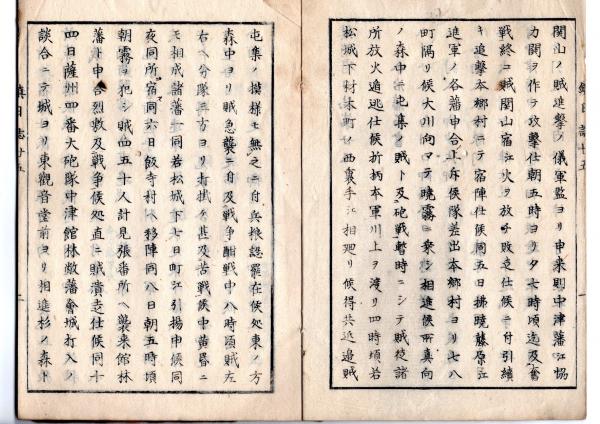 関山ノ賊進撃ノ儀軍監ヨリ申来則中津藩江協
力鬨ヲ作テ攻撃仕朝五時ヨリ夕七時頃迄及奮
戦終ニ賊関山宿江火ヲ放チ敗走仕候ニ付引續
キ追撃本郷村ニテ宿陣仕候同五日拂曉藤原江
進軍ノ各藩申合上斥候隊差出本郷村ヨリ七八
町隔リ候大川向マテ曉霧ニ乗シ相進候所真向
ノ森中ニ屯集ノ賊ト及砲戦暫時ニシテ賊徒諸
所放火遁逃仕候折柄本軍川上ヲ渡リ四時頃若
松城下材木町ノ西裏手江相廻リ使得共近邉賊
屯集ノ模様モ無之ニ付兵粮認罷在候処東ノ方
森中ヨリ賊急襲ニ付及戦争酣戦中八時頃賊左
右ヘ分隊三方ヨリ打掛ケ甚及苦戦候中黄昏ニ
モ相成諸藩一同若松城下七日町江引揚申候同
夜同所宿同六日飯寺村ヘ移陣同八日朝五時頃
朝霧ヲ犯シ賊四五十人計見張番所ヘ襲来館林
藩ト申合烈敷及戦争候処直ニ賊潰走仕候同十
四日薩州四番大砲隊中津館林敝藩會城打入ノ
談合ニテ京城ヨリ東觀音堂前ヨリ相進杉ノ森ト
鎮日誌廿五
一